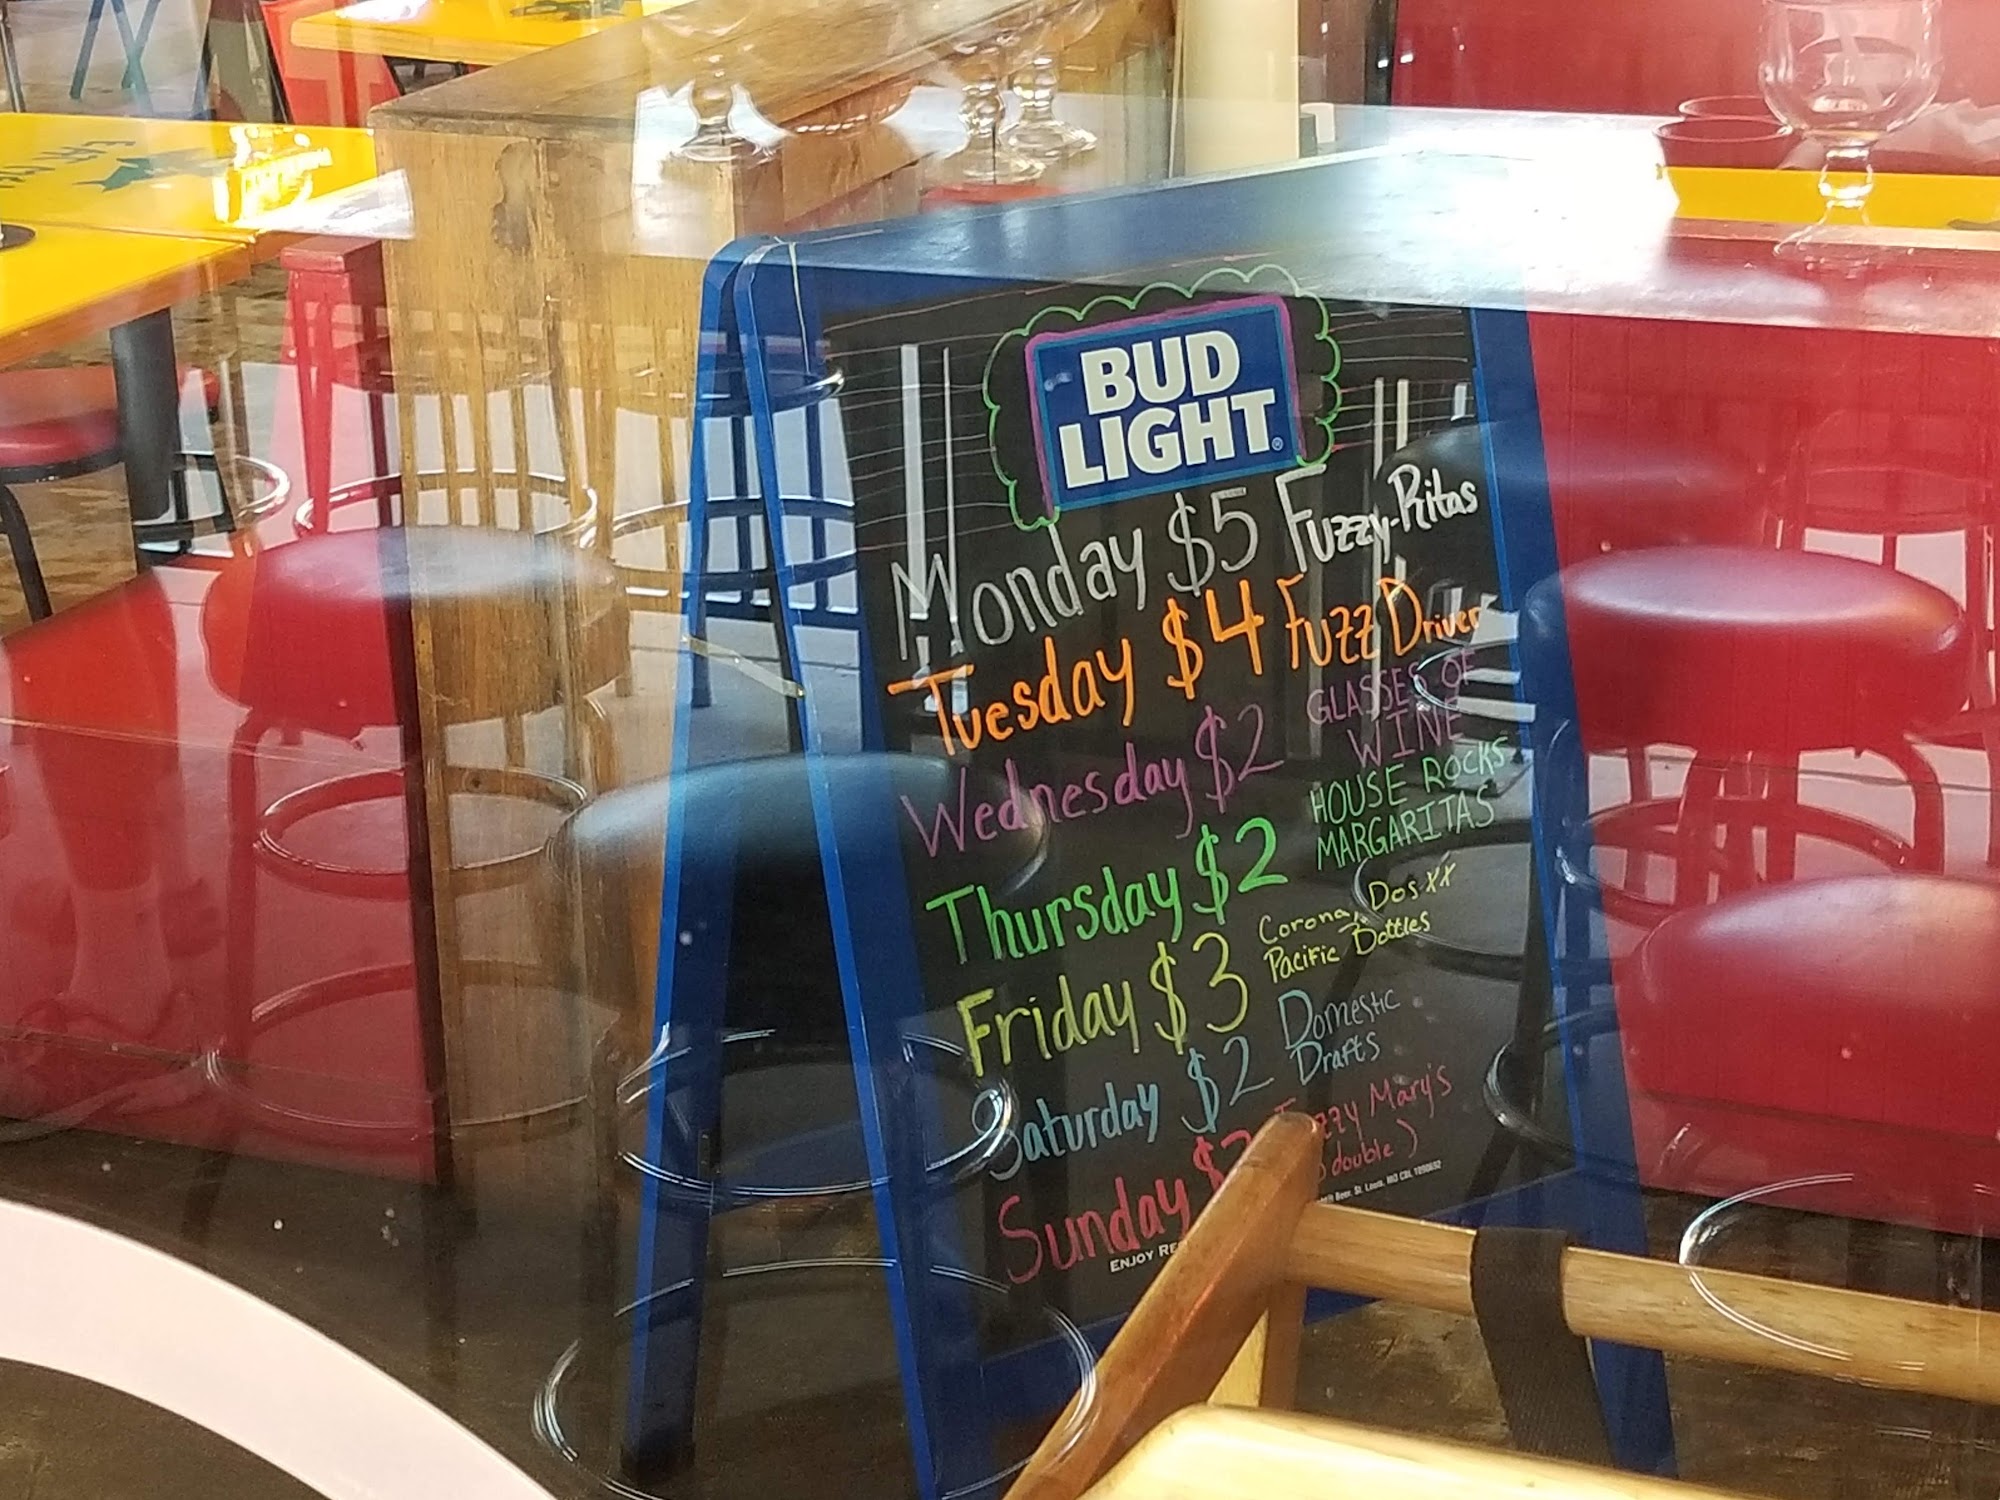 BUD
LIGHT®
Monday $5 Fuzzy-Ritas
Tuesday $4 Fuzz Driver
Wednesday $2 GLASSES OF
WINE
Thursday $2 HOUSE ROCKS
MARGARITAS
Friday $3 Corona, Dos XX
Pacific Bottles
Saturday $2 Domestic
Drafts
Sunday Mary's
double)
Beer, St. Louis, MO
ENJOY